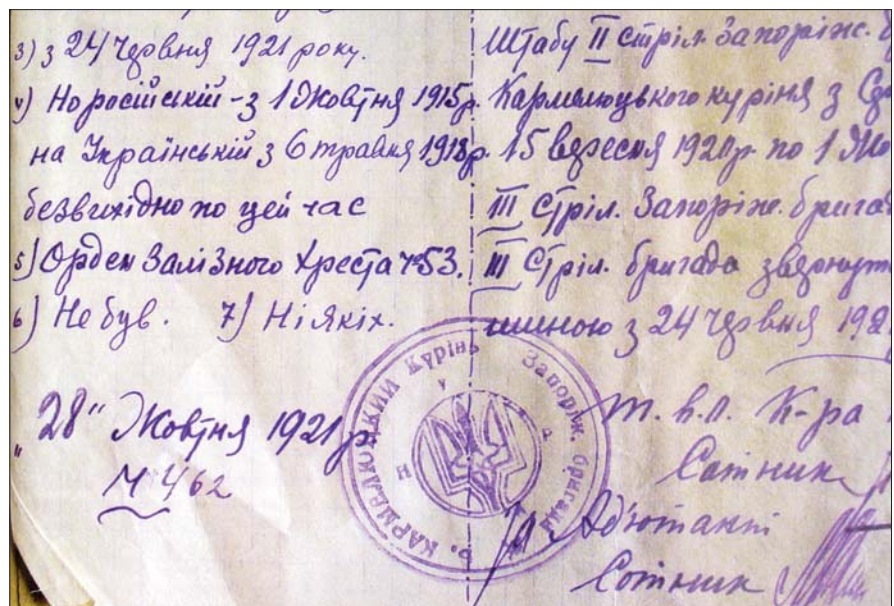 3) з 24 червня 1921 року.
4) На російській – з 1 Жовтня 1915р.
на Українській з 6 травня 1918р.
безвихідно по цей час
5) Орден Залізного Хреста ч 53.
6) Не був. 7) Ніяких.
"28" Жовтня 1921 р.
Ч 462
Штабу II Стріл. Запоріж.
Кармелюцького куріня з
15 вересня 1920р. по 1
III Стріл. Запоріж. бригад
III Стріл. бригада звернут
шиною з 24 червня 192
т. в. п. К-ра
Сотник
Ад'ютант
Сотник
КАРМЕЛЮЦКИЙ Курінь Запоріж. бригади
У Н Р